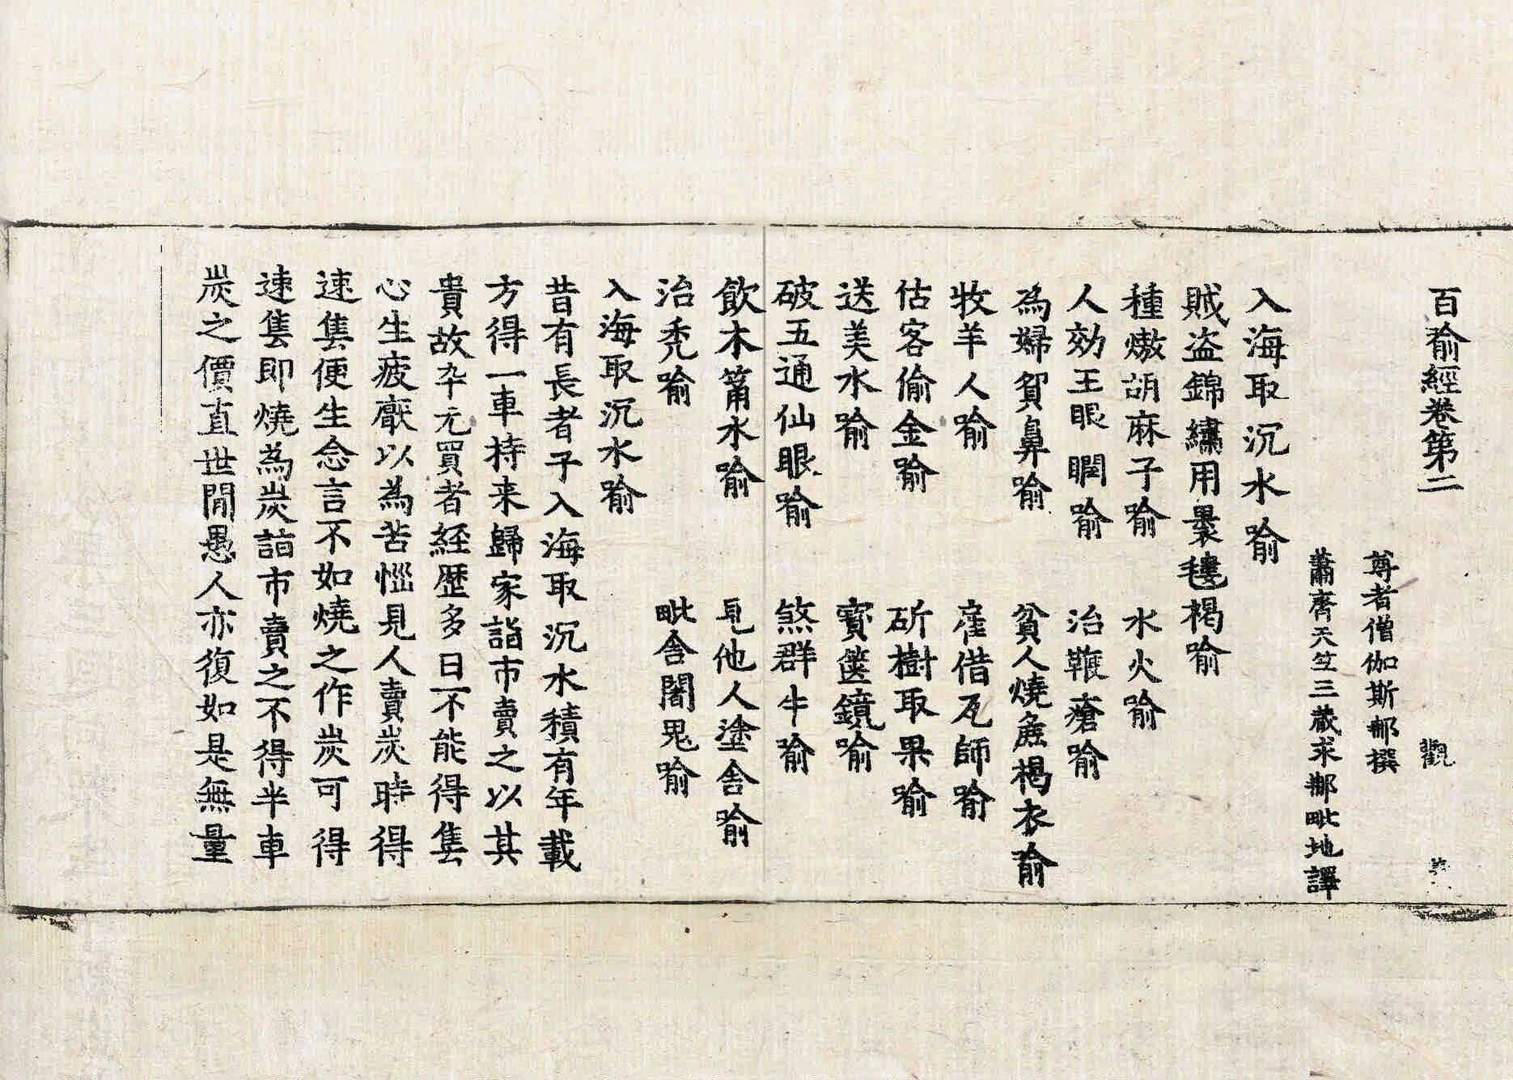 百喻經卷第二 觀
尊者僧伽斯那撰
蕭齊天竺三藏求那毗地譯
入海取沉水喻
賊盜錦繡用褁㲣褐喻
種熬胡麻子喻 水火喻
人効王眼瞤喻 治鞭瘡喻
為婦貿鼻喻 貧人燒麁褐衣喻
牧羊人喻 雇借瓦師喻
估客偷金喻 斫樹取果喻
送美水喻 寶篋鏡喻
破五通仙眼喻 煞群牛喻
飲木筩水喻 見他人塗舍喻
治禿喻 毗舍闍鬼喻
入海取沉水喻
昔有長者子入海取沉水積有年載
方得一車持来歸家詣市賣之以其
貴故卒无買者経歷多日不能得售
心生疲厭以為苦惱見人賣炭時得
速售便生念言不如燒之作炭可得
速售即燒為炭詣市賣之不得半車
炭之價直世間愚人亦復如是無量